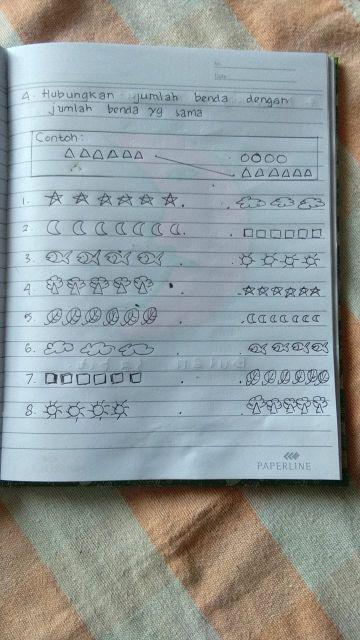 No.
Date
A. Hubungkan jumlah benda dengan
jumlah benda yg sama
Contoh:
1.
2.
3.
4.
5.
6.
7.
8.
PAPERLINE